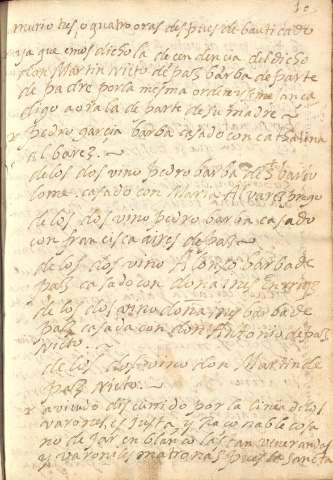 10
murio tres, o quatro oras despues de bautiçado
ya que emos dicho la decendençia del dicho
don Martin nieto de paz barba de parte
de padre por la mesma orden
digo aora la de parte de su madre
pedro garçia barba casado con catalina
albarez.
de los dos vino pedro barba de
lome. casado con Maria Alvarez
de los dos vino pedro barba casado
con françisca aires de paz
de los dos vino Alonso barba de
paz casado con doña ines enrriqz
de los dos vino doña ines barba de
paz casada con don Antonio de paz
nieto.
de los dos vino don Martin de
paz nieto.
aviendo discurrido por la linea de los
varones, es justa, y raçonable cosa
no dejar en blanco las tan venerandas
y varoniles matronas pues la sancta